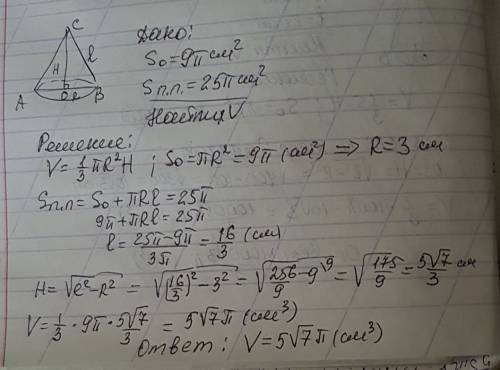 C
H
l
A
O
R
B
Дано:
S₀=9π см²
Sп.п.=25π см²
Найти V
Решение:
V=1/3 πR²H ; S₀=πR²=9π (см²) ⟹ R=3 см
Sп.п=S₀+πRl=25π
9π+πRl=25π
l=(25π-9π)/3π=16/3 (см)
H=√(l²-R²)=√((16/3)²-3²)=√((256-9\9)/9)=√(175/9)=5√7/3 см
V=1/3·9π·5√7/3=5√7π (см³)
Ответ: V=5√7π (см³)